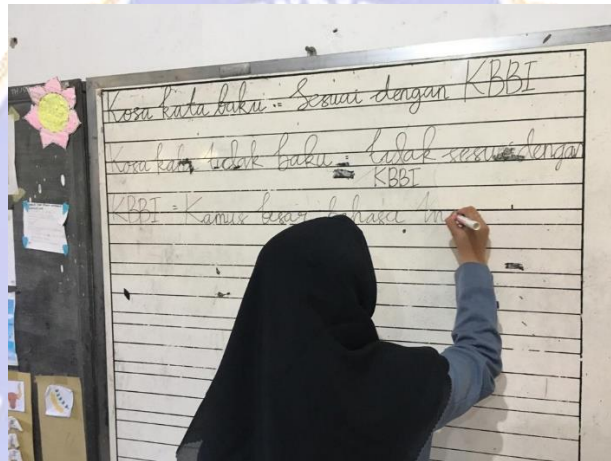 Kosa kata baku = Sesuai dengan KBBI
Kosa kata tidak baku = tidak sesuai dengan
KBBI
KBBI = Kamus besar bahasa In